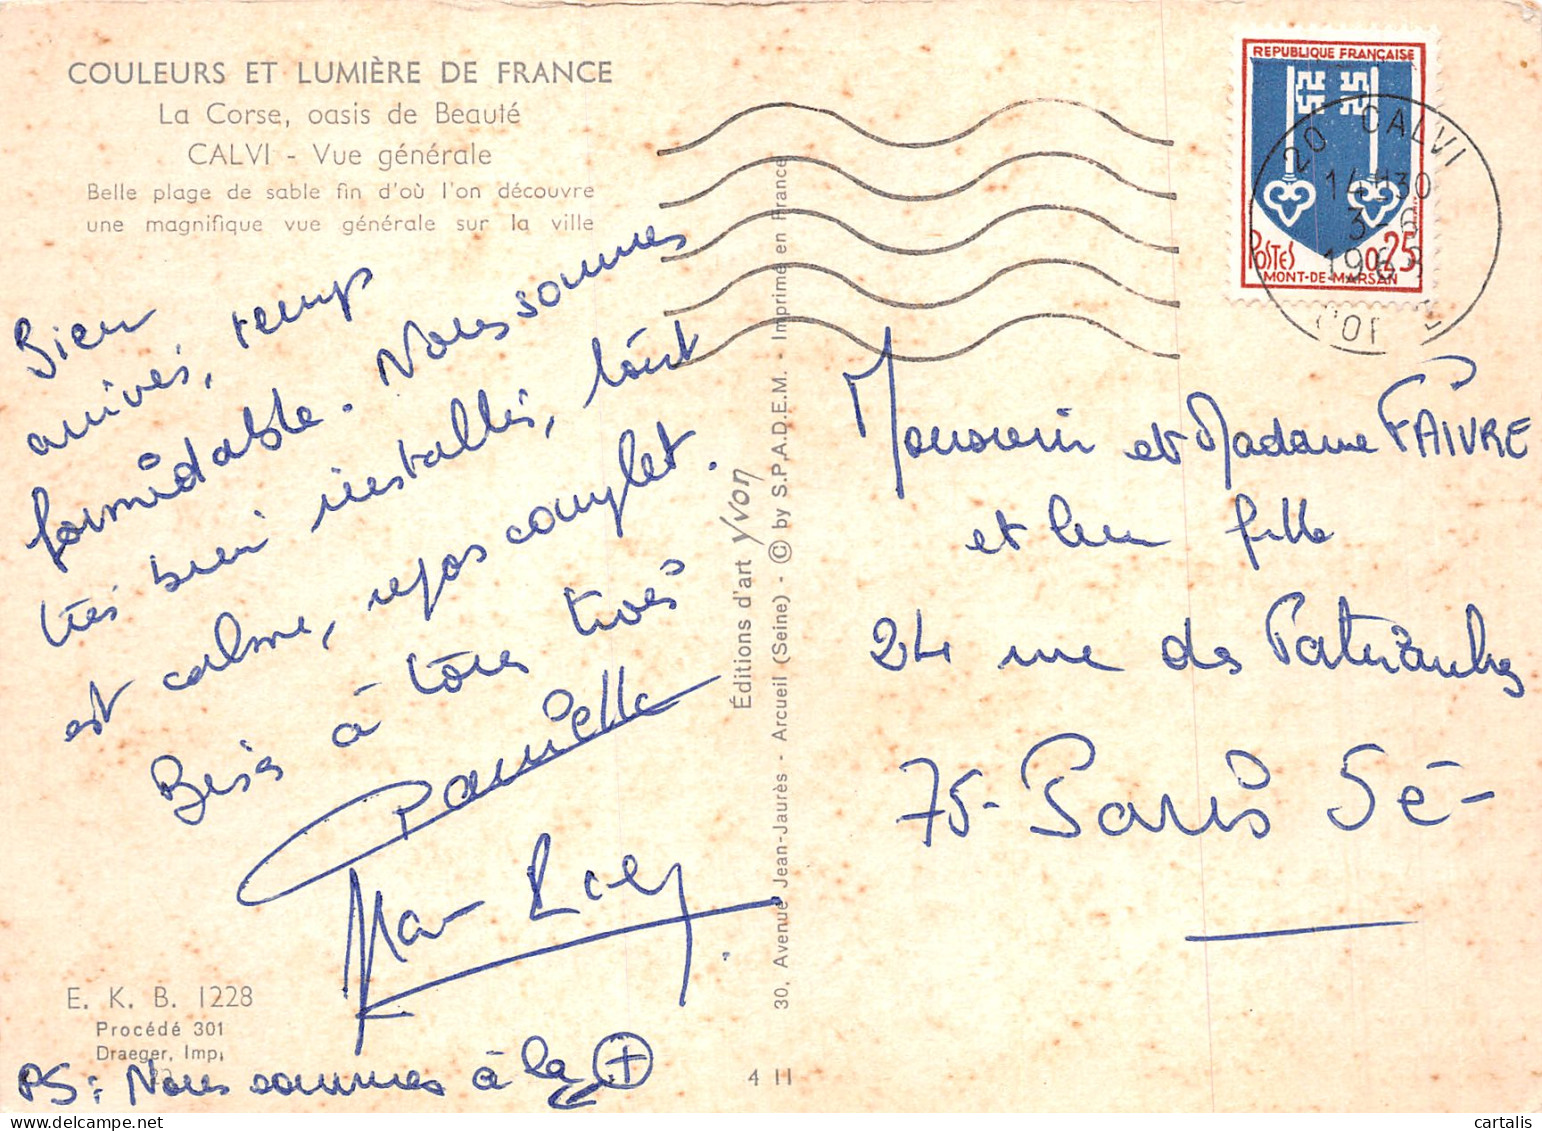 COULEURS ET LUMIÈRE DE FRANCE
La Corse, oasis de Beauté
CALVI - Vue générale
Belle plage de sable fin d'où l'on découvre
une magnifique vue générale sur la ville
Bien
arrivés, temps
formidable. Nous sommes
très bien installés, tout
est calme, repos complet.
Bises à tous trois
Danielle
E. K. B. 1228
Procédé 301
Draeger, Imp.
PS: Nous sommes à la
Éditions d'art Yvon
30, Avenue Jean-Jaurès - Arcueil (Seine) - © by S.P.A.D.E.M. - Imprimé en France
4 11
REPUBLIQUE FRANÇAISE
POSTES 0,25
MONT-DE-MARSAN
20 CALVI
14 H30
3-6
196
Monsieur et Madame FAIVRE
et leur fille
24 rue des Patriarches
75- Paris 5è-
cartalis